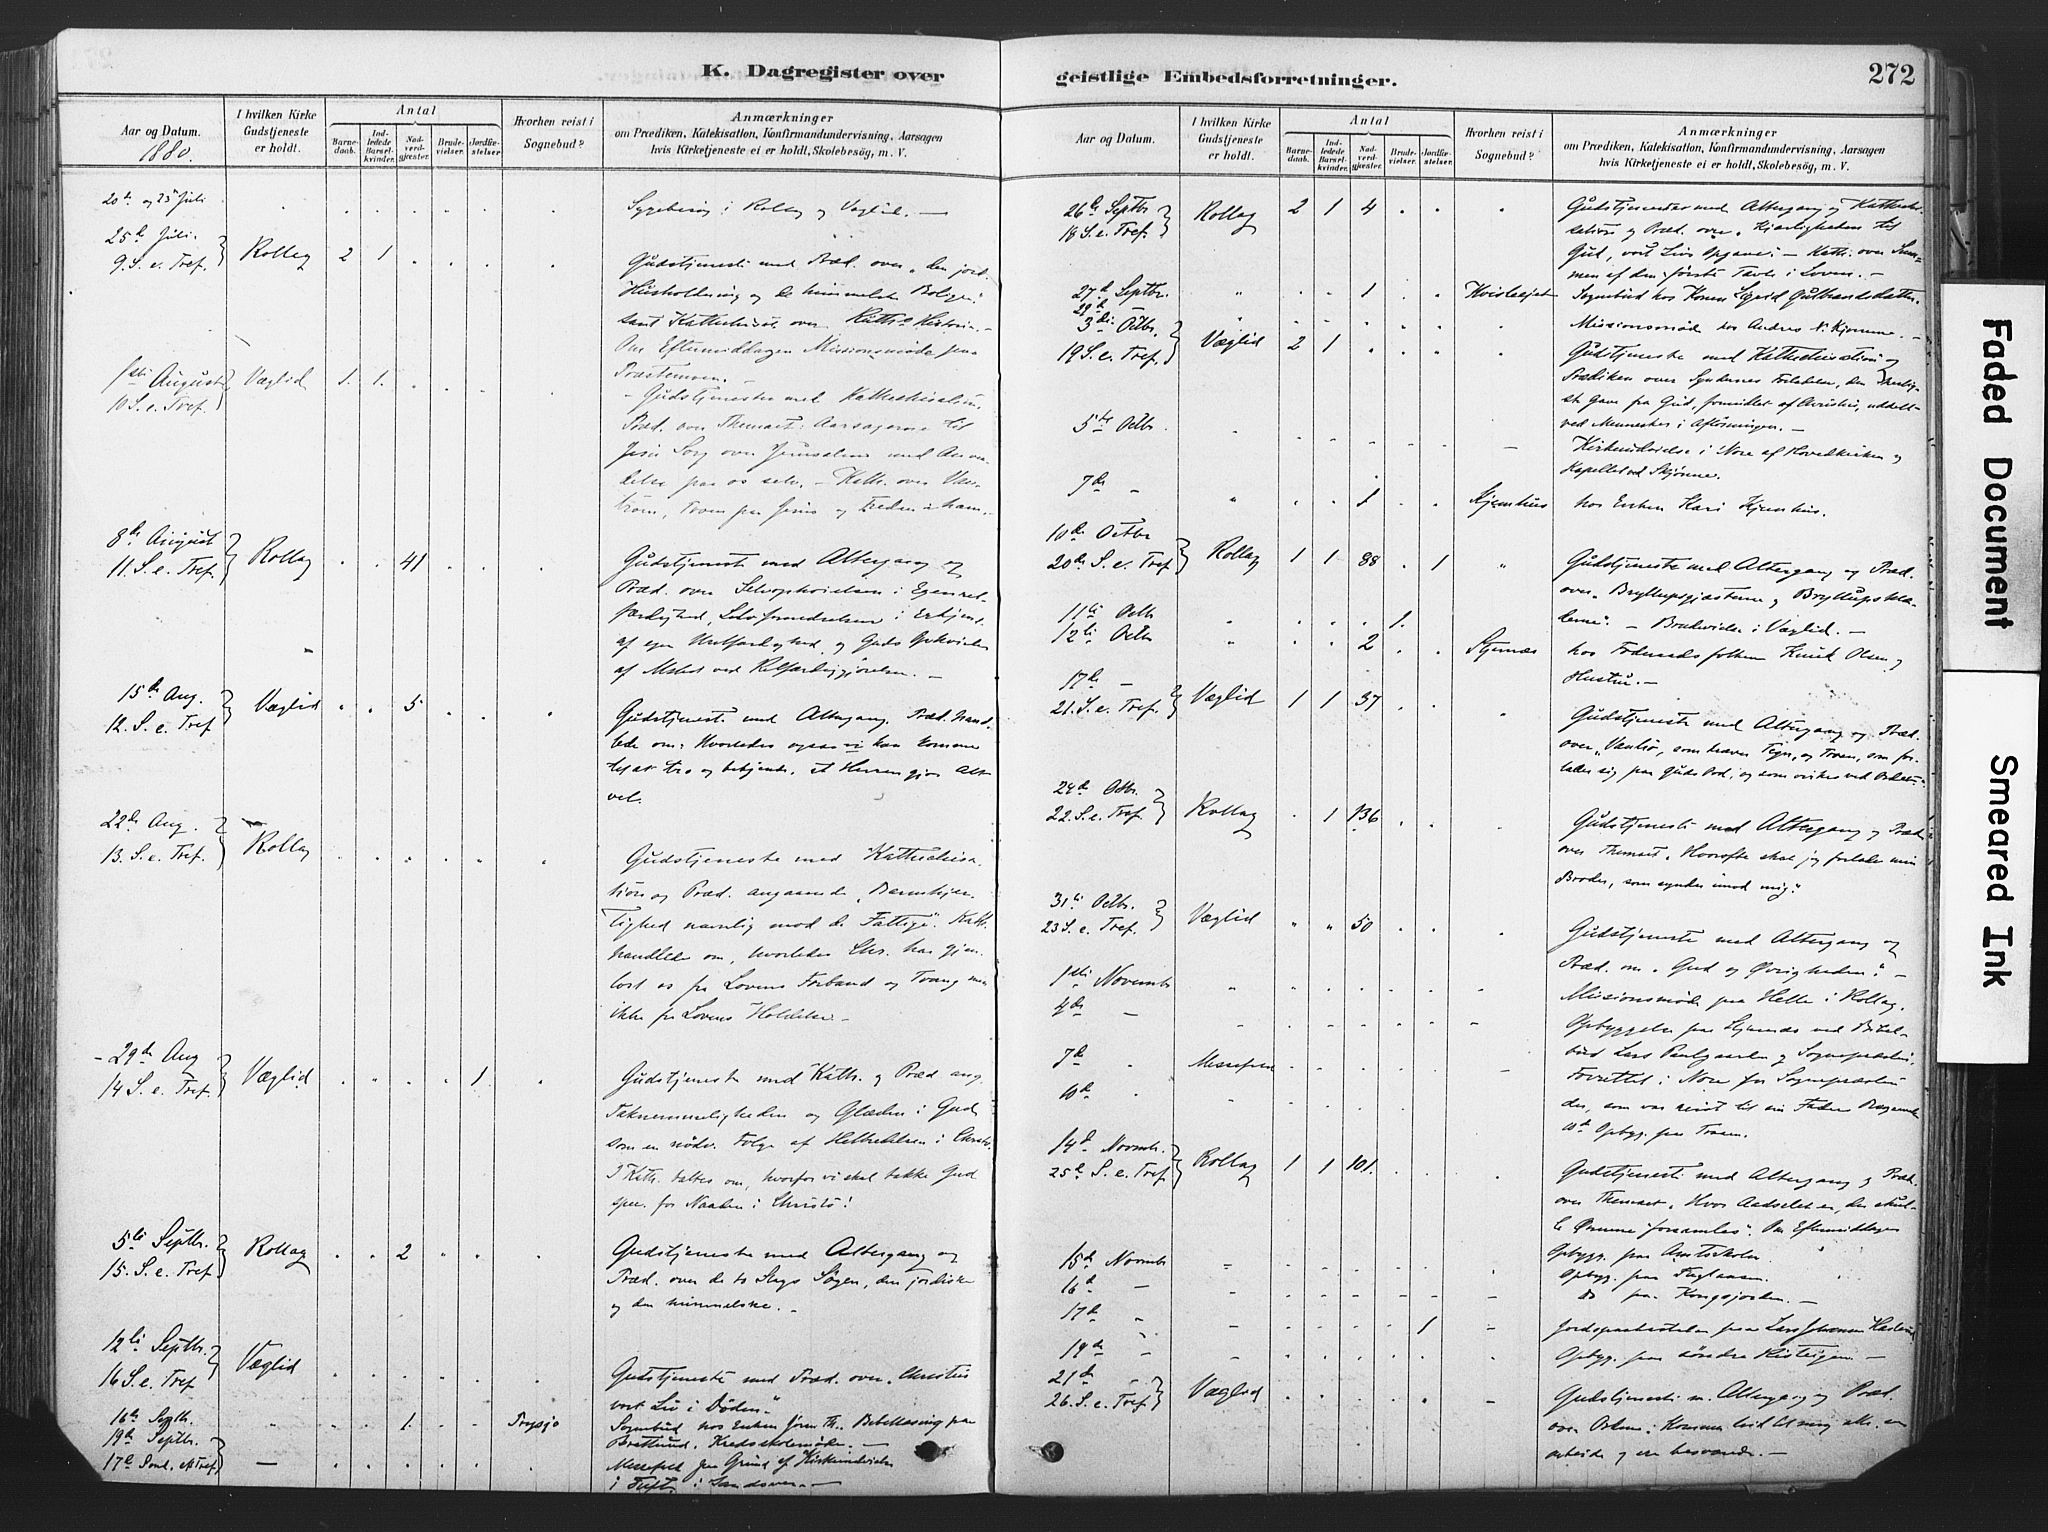 K. Dagregister over geistlige Embedsforretninger.
272
Aar og Datum.
1880.
I hvilken Kirke
Gudstjeneste
er holdt.
Antal
Barne-
daab.
Ind-
ledede
Barsel-
kvinder.
Nad-
verd-
gjester.
Brude-
vielser.
Jordfæ-
stelser.
Hvorhen reist i
Sognebud?
Anmærkninger
om Prædiken, Katekisation, Konfirmandundervisning, Aarsagen
hvis Kirketjeneste ei er holdt, Skolebesøg, m. V.
20de og 23de Juli
Sygebesøg i Rollag og Væglid. —
25de Juli.
9. S. e. Tref. Rollag 2 1
Gudstjeneste med Præd. over "den jord.
Husholdning og de himmelske Boliger"
samt Katechisat. over Ruths Historie. —
Om Eftermiddagen Missionsmøde paa
Præstemoen.
1ste August Væglid 1. 1.
10 S. e. Tref.
— Gudstjeneste med Katechisation,
Præd. over Themaet: Aarsagerne til
Jesu Sorg over Jerusalem med Anven-
delse paa os selv. — Kath. over Van-
troen, Troen paa Jesus og Freden i ham.
8de August
11. S. e. Tref. Rollag 41
Gudstjeneste med Altergang og
Præd. over Selvophøielsen i Egenret-
færdighed, Selvfornedrelsen i Erkjend.
af egen Uretfærdighed, og Guds Opvækkelse
af Mskt ved Retfærdiggjørelsen. —
15de Aug.
12. S. e. Tref Væglid 5
Gudstjeneste med Altergang. Præd. hand-
lede om: Hvorledes ogsaa vi kan komme
til at tro og bekjende, at Herren gjør Alt
vel.
22de Aug.
13. S. e. Tref. Rollag
Gudstjeneste med Kathechisa-
tion og Præd. angaaende "Barmhjer-
tighed navnlig mod de Fattige". Kath.
handlede om, hvorledes Chr. har gjen-
løst os fra Lovens Forband og Tvang men
ikke fra Lovens Holdelse. —
29de Aug
14 S. e. Tref. Væglid 1
Gudstjeneste med Kath. og Præd ang.
Taknemmeligheden og Glæden i Gud
som en nødv. Følge af Helbredelsen i Christo.
I Kath. taltes om, hvorfor vi skal takke Gud
spec. for Naaden i Christo!
5te Septbr.
15. S. e. Tref Rollag 2
Gudstjeneste med Altergang og
Præd. over de to Slags Søgen, den jordiske
og den himmelske. —
12te Septbr.
16 S. e. Tref Væglid
Gudstjeneste med Præd. over "Christus
vort Liv i Døden."
16de Septbr. 1.
Sognebud hos Enken Jøren Th.
19de Septbr.
Kredsskolemøde. —
17de Sønd. e. Tref —
Messefald paa Grund af Kirkeindvielse
i Tuft i Sandsver. —
Aar og Datum.
I hvilken Kirke
Gudstjeneste
er holdt.
Antal
Barne-
daab.
Ind-
ledede
Barsel-
kvinder.
Nad-
verd-
gjester.
Brude-
vielser.
Jordfæ-
stelser.
Hvorhen reist i
Sognebud?
Anmærkninger
om Prædiken, Katekisation, Konfirmandundervisning, Aarsagen
hvis Kirketjeneste ei er holdt, Skolebesøg, m. V.
26de Septbr.
18 S. e. Tref. Rollag 2 1 4
Gudstjeneste med Altergang og Kathechi-
sation og Præd. over "Kjærligheden til
Gud, vort Livs Opgave". — Kath. over Sum-
men af den første Tavle i Loven. —
27de Septbr. 1
Sognebud hos Konen Sigrid Gulbrandsdatter.
28de —
Missionsmøde hos Anders N. Kjomme. —
3die Octbr.
19 S. e. Tref. Væglid 2 1
Gudstjeneste med Kathechisation og
Prædiken over Syndernes Forladelse, den herlig-
ste Gave fra Gud, formidlet af Christus, uddelt
ved Mennesker i Afløsningen. —
5te Octbr.
Kirkeindvielse i Nore af Hovedkirken og
Kapellet ved Skjønne.
7de — 1
hos Enken Kari
10de Octbr
20de S. e. Tref Rollag 1 1 88 1
Gudstjeneste med Altergang og Præd.
over "Bryllupsgjæsterne og Bryllupsklæ-
derne". —
11te Octb 1.
Brudevielse i Væglid. —
12te Octbr 2 Stjernes
hos Føderaadsfolkene Knut Olsen og
Hustru. —
17de —
21. S. e. Tref. Væglid 1 1 37
Gudstjeneste med Altergang og Præd.
over "Vantro, som kræver Tegn, og Troen, som for-
lader sig paa Guds Ord, og som virkes ved Ordet".
24de Octbr.
22. S. e. Tref. Rollag 1 136
Gudstjeneste med Altergang og Præd
over Themaet "Hvorofte skal jeg forlade min
Broder, som synder imod mig".
31te Octbr.
23 S. e. Tref. Væglid 50
Gudstjeneste med Altergang og
Præd. om "Gud og Øvrigheden". —
1ste Novembr
Missionsmøde paa Helle i Rollag.
4de —
Opbyggelse paa Stjernes ved Bibel-
bud Lars Paulgaarden og Sognepræsten.
7de Messefald
Forrettet i Nore for Sognepræsten
der, som var reist til sin Fader
10de
10de Opbyg. paa Traaen.
14de Novmbr.
25de S. e. Tref Rollag 1 1 101.
Gudstjeneste med Altergang og Præd.
over Themaet "Hvor Aadselet er, der skul-
le Ørnene forsamles". Om Eftermiddagen
Opbygg. paa Amtsskolen.
15de Novmbr
Opbyg. paa
16de —
Do paa Kongsjorden. —
17de 1
Jordpaakastelse paa Lars
19de
Opbyg. paa søndre —
21de
26. S. e. Tref Væglid
Gudstjeneste m. Altergang og Præd.
over Ordene: Kommer hid til mig alle, som
arbeide og ere besværede. —
Faded Document
Smeared Ink